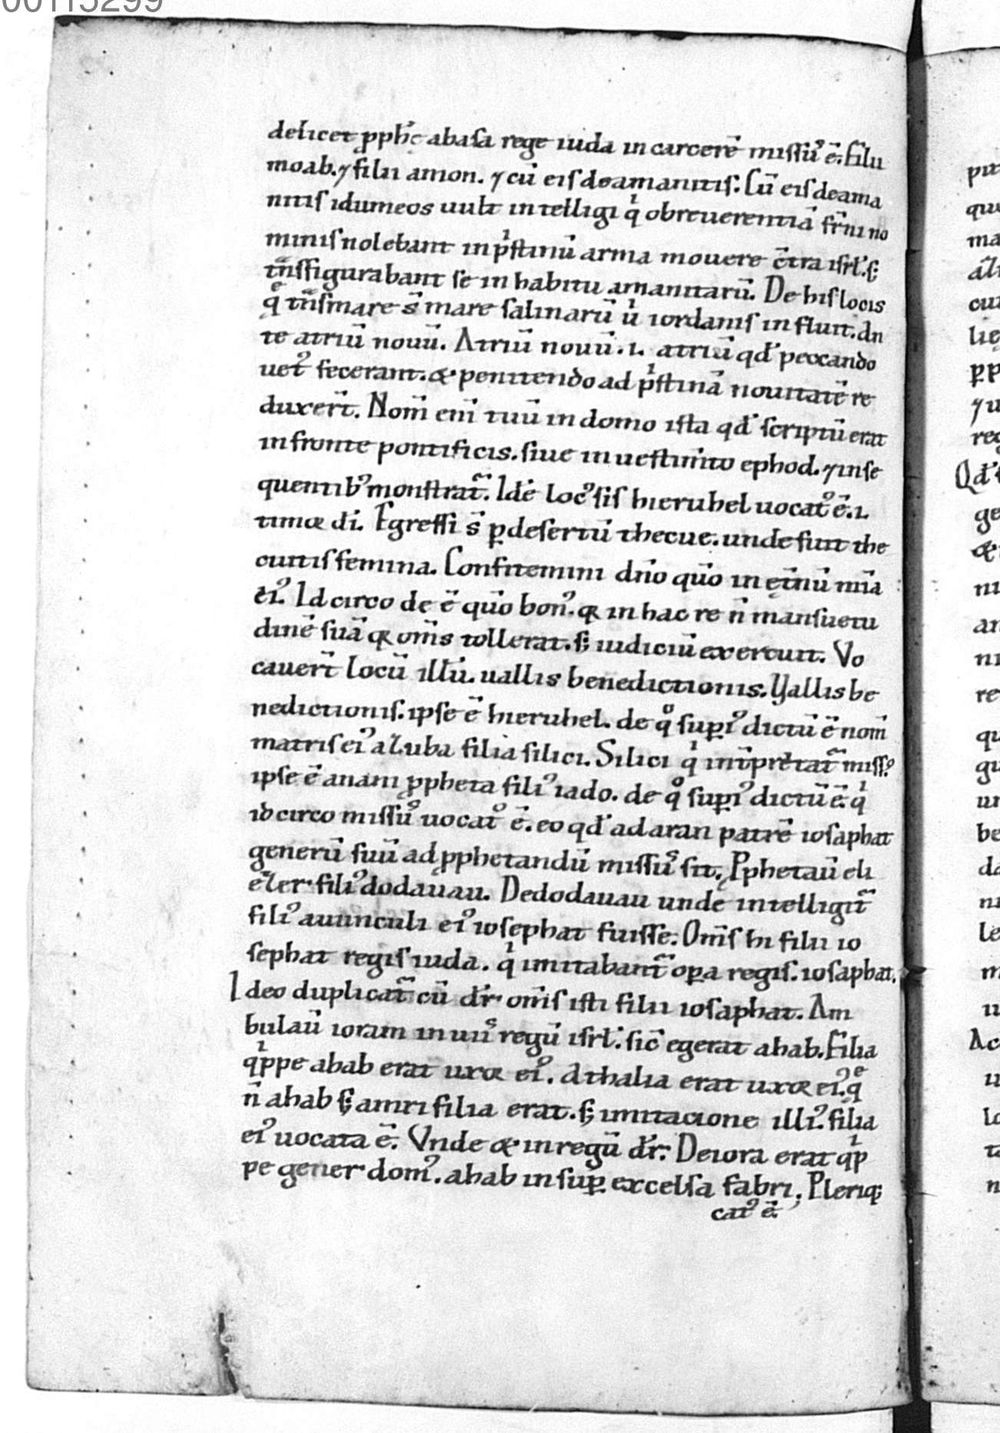 00115299
delicet ꝓph̄ abasa rege iuda in carcerē missꝰ ē. Filii
moab. ⁊ filii amon. ⁊ cū eis de amanitis. Cū eis de ama
nitis idumeos uult intelligi qͥ ob reuerentiā fr̄ni no
minis nolebant in pͥstinū arma mouere c̄tra isrl̄. sꝫ
tn̄sfigurabant se in habitu amanitarū. De his locis
q̄ tn̄smare s̄ mare salinarū uͥ iordanis influit. an
te atriū nouū. Atriū nouū .i. atriū qd̄ peccando
uetꝰ fecerant. & penitendo ad pͥstinā nouitatē re
duxer̄t. Nom̄ eni̅ tuū in domo ista qd̄ scriptū erat
in fronte pontificis. siue in uestim̄to ephod. ⁊ in se
quentibꝰ monstrat᷑. Idē locꝰ sis hieruhel uocatꝰ ē .i.
timor dī. Egressi s̄ ꝑ desertū thecue. unde fuit the
cuitis femina. Confitemini dn̄o qūo in et̄nū mīa
eiꝰ. Idcirco de ē qūo bonꝰ. qr in hac re n̄ mansuetu
dinē suā qr om̄s tollerat. sꝫ iudiciū exercuit. Vo
cauer̄t locū illū. uallis benedictionis. Vallis be
nedictionis. ipse ē hieruhel. de qͦ supiꝰ dictū ē nom̄
matris eiꝰ azuba filia silici. Silici qͥ int̄pretat᷑ missꝰ
ipse ē anani ꝓpheta filiꝰ iado. de qͦ supiꝰ dictū ē. qͥ
idcirco missꝰ uocatꝰ ē. eo qd̄ ad aran patrē iosaphat
generū suū ad ꝓphetandū missꝰ sit. Ꝓphetauͭ eli
ezer filiꝰ dodauau. De dodauau unde intelligit᷑
filiꝰ auunculi eiꝰ iosephat fuisse. Om̄s hi filii io
sephat regis iuda. qͥ imitabant᷑ oꝑa regis. iosaphat.
Ideo duplicat᷑ cū dr̄ om̄s isti filii iosaphat. Am
bulauͭ ioram in uiis regū isrl̄. sic̄ egerat ahab. Filia
qͥppe ahab erat uxor eiꝰ. Athalia erat uxor eiꝰ. q̄
n̄ ahab sꝫ amri filia erat. sꝫ imitacione illiꝰ. filia
eiꝰ uocata ē. Vnde & in regū dr̄. De iora erat qͥp
pe gener domꝰ. ahab insuꝑ excelsa fabri, Pleriqꝫ
catꝰ ē.